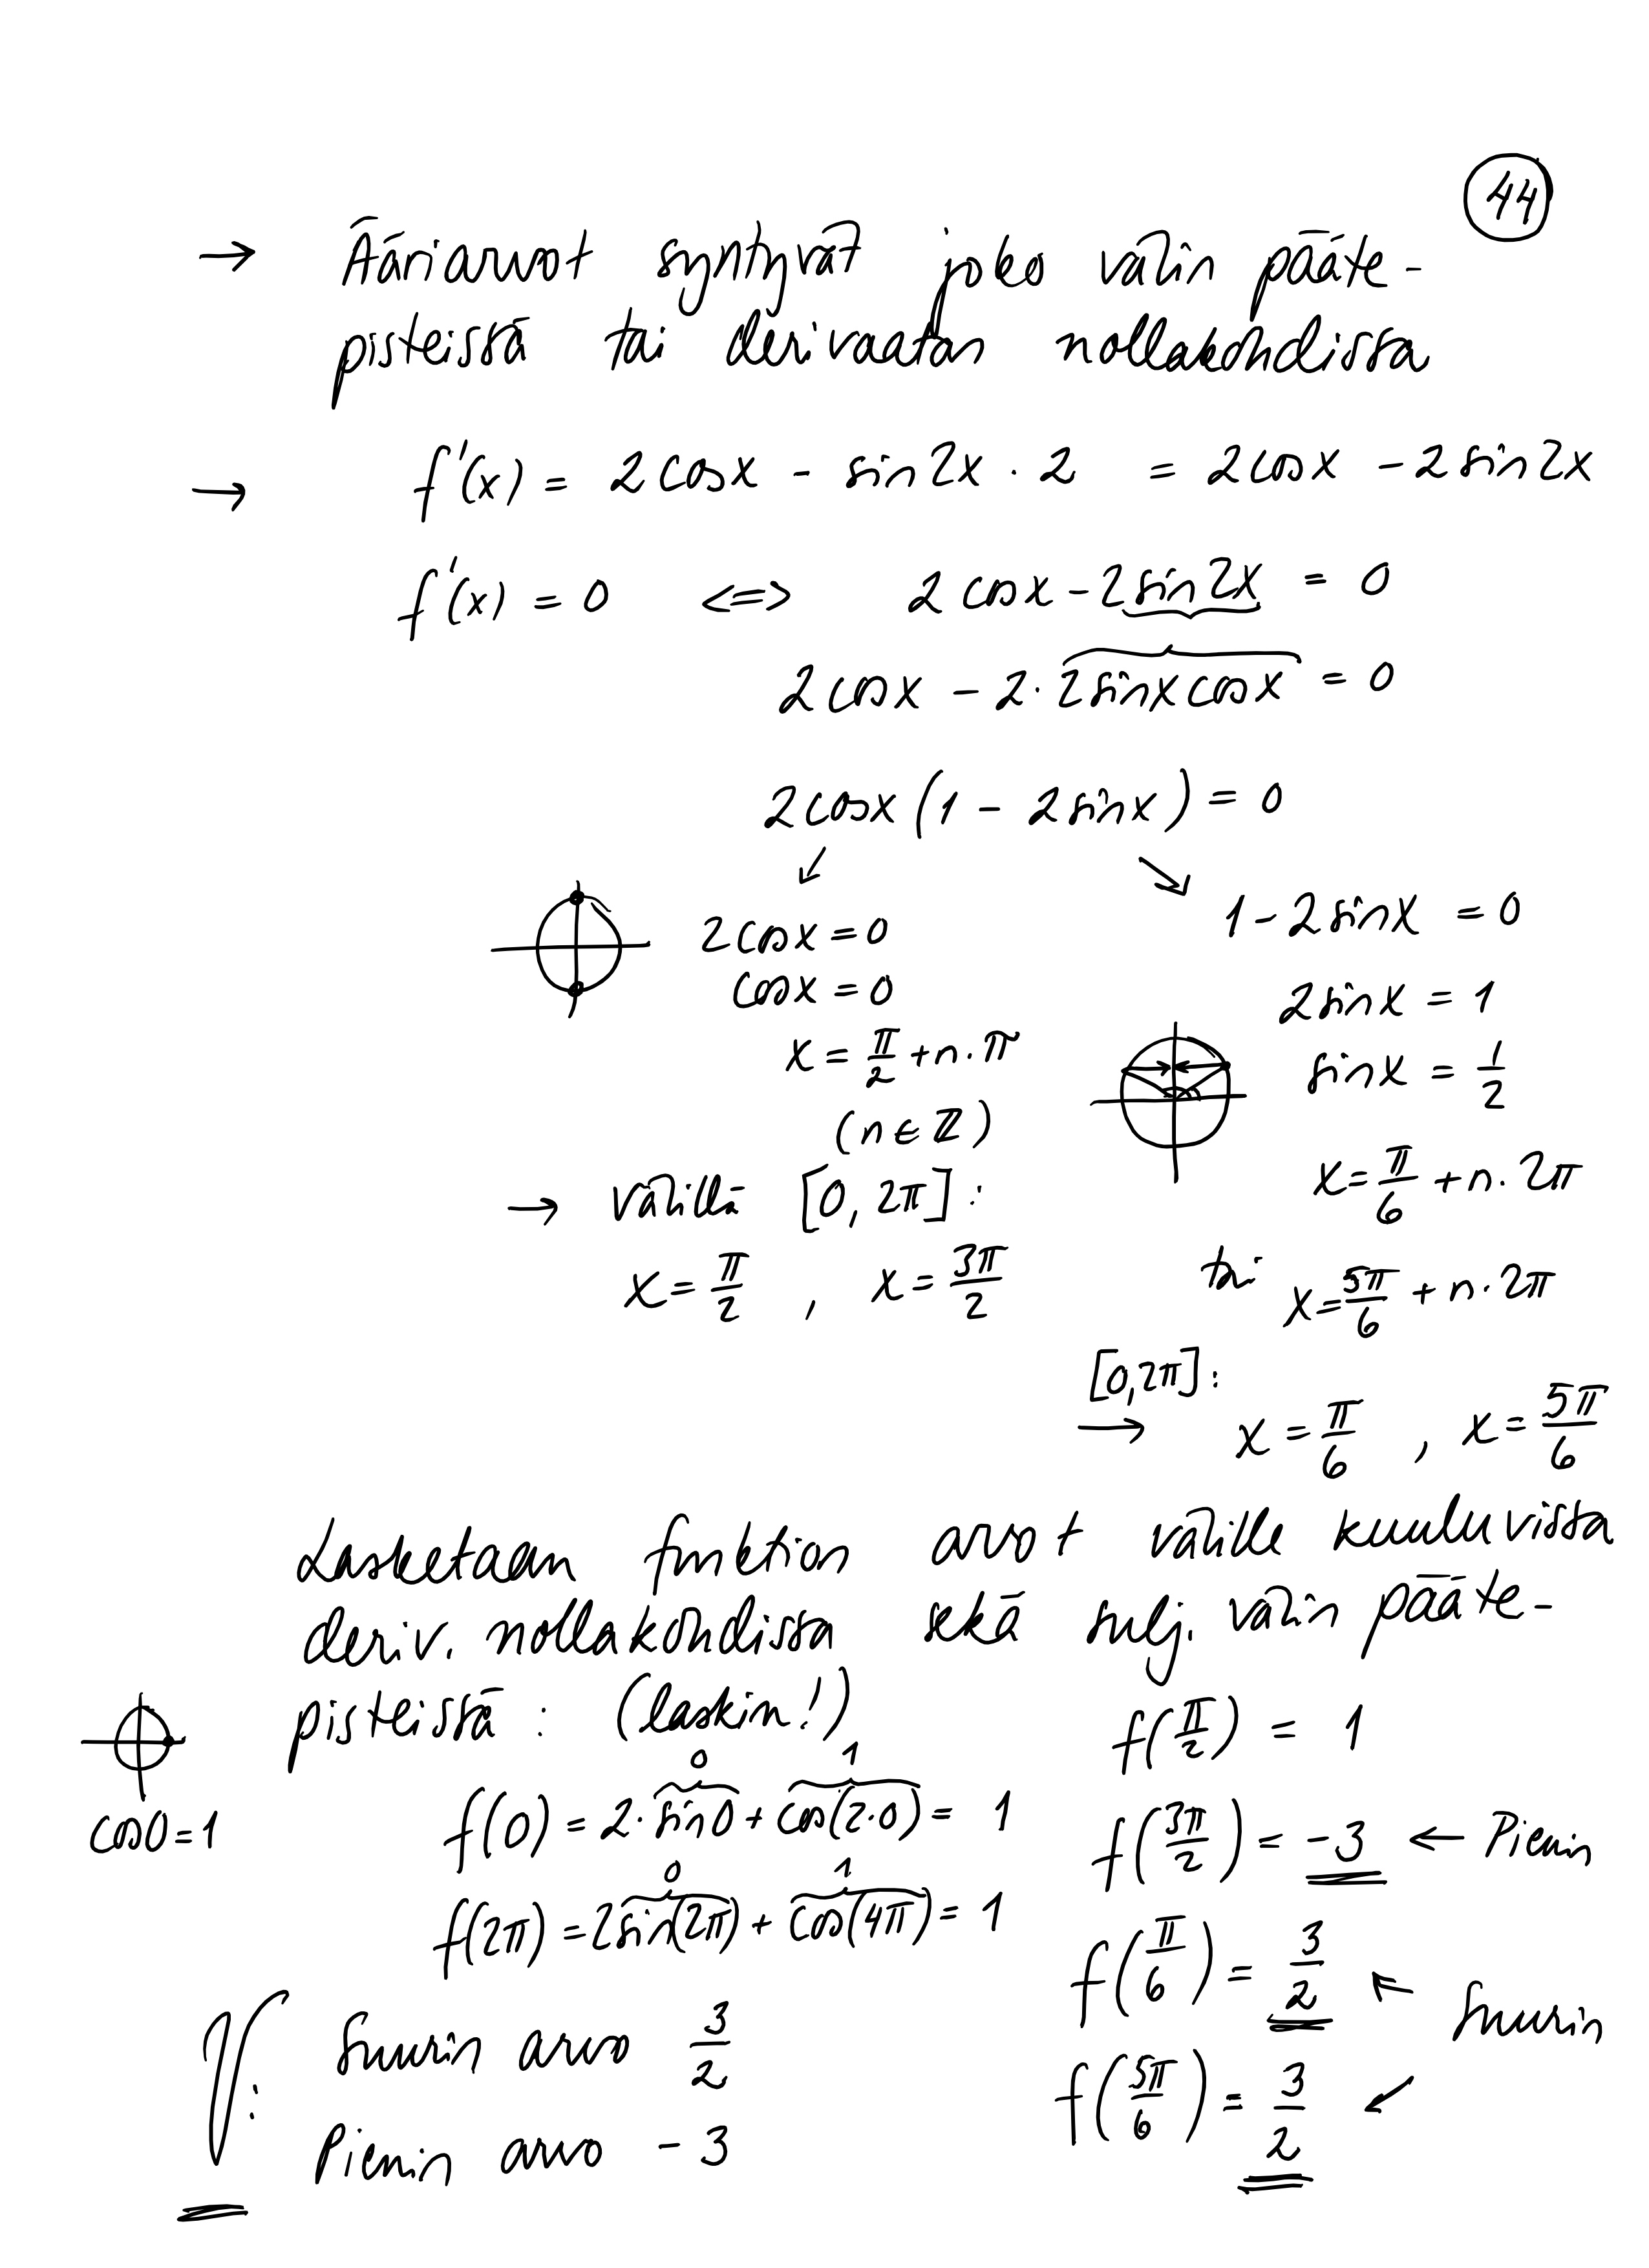 44
→ Ääriarvot syntyvät joko välin pääte-
pisteissä tai derivaatan nollakohdissa
→ f'(x) = 2cosx - sin2x · 2 = 2cosx - 2sin2x
f'(x) = 0 <=> 2cosx - 2sin2x = 0
2cosx - 2·2sinxcosx = 0
2cosx(1 - 2sinx) = 0
2cosx = 0
cosx = 0
x = π/2 + n·π
(n∈ℤ)
→ välillä [0, 2π]:
x = π/2 , x = 3π/2
1 - 2sinx = 0
2sinx = 1
sinx = 1/2
x = π/6 + n·2π
tai x = 5π/6 + n·2π
[0,2π]:
→ x = π/6 , x = 5π/6
Lasketaan funktion arvot välille kuuluvissa
deriv. nollakohdissa sekä sulj. välin pääte-
pisteissä : (laskin!)
cos0 = 1
0 1
f(0) = 2·sin0 + cos(2·0) = 1
0 1
f(2π) = 2sin(2π) + cos(4π) = 1
f(π/2) = 1
f(3π/2) = -3 ← Pienin
f(π/6) = 3/2 ← Suurin
f(5π/6) = 3/2 ↙
V: Suurin arvo 3/2
Pienin arvo -3